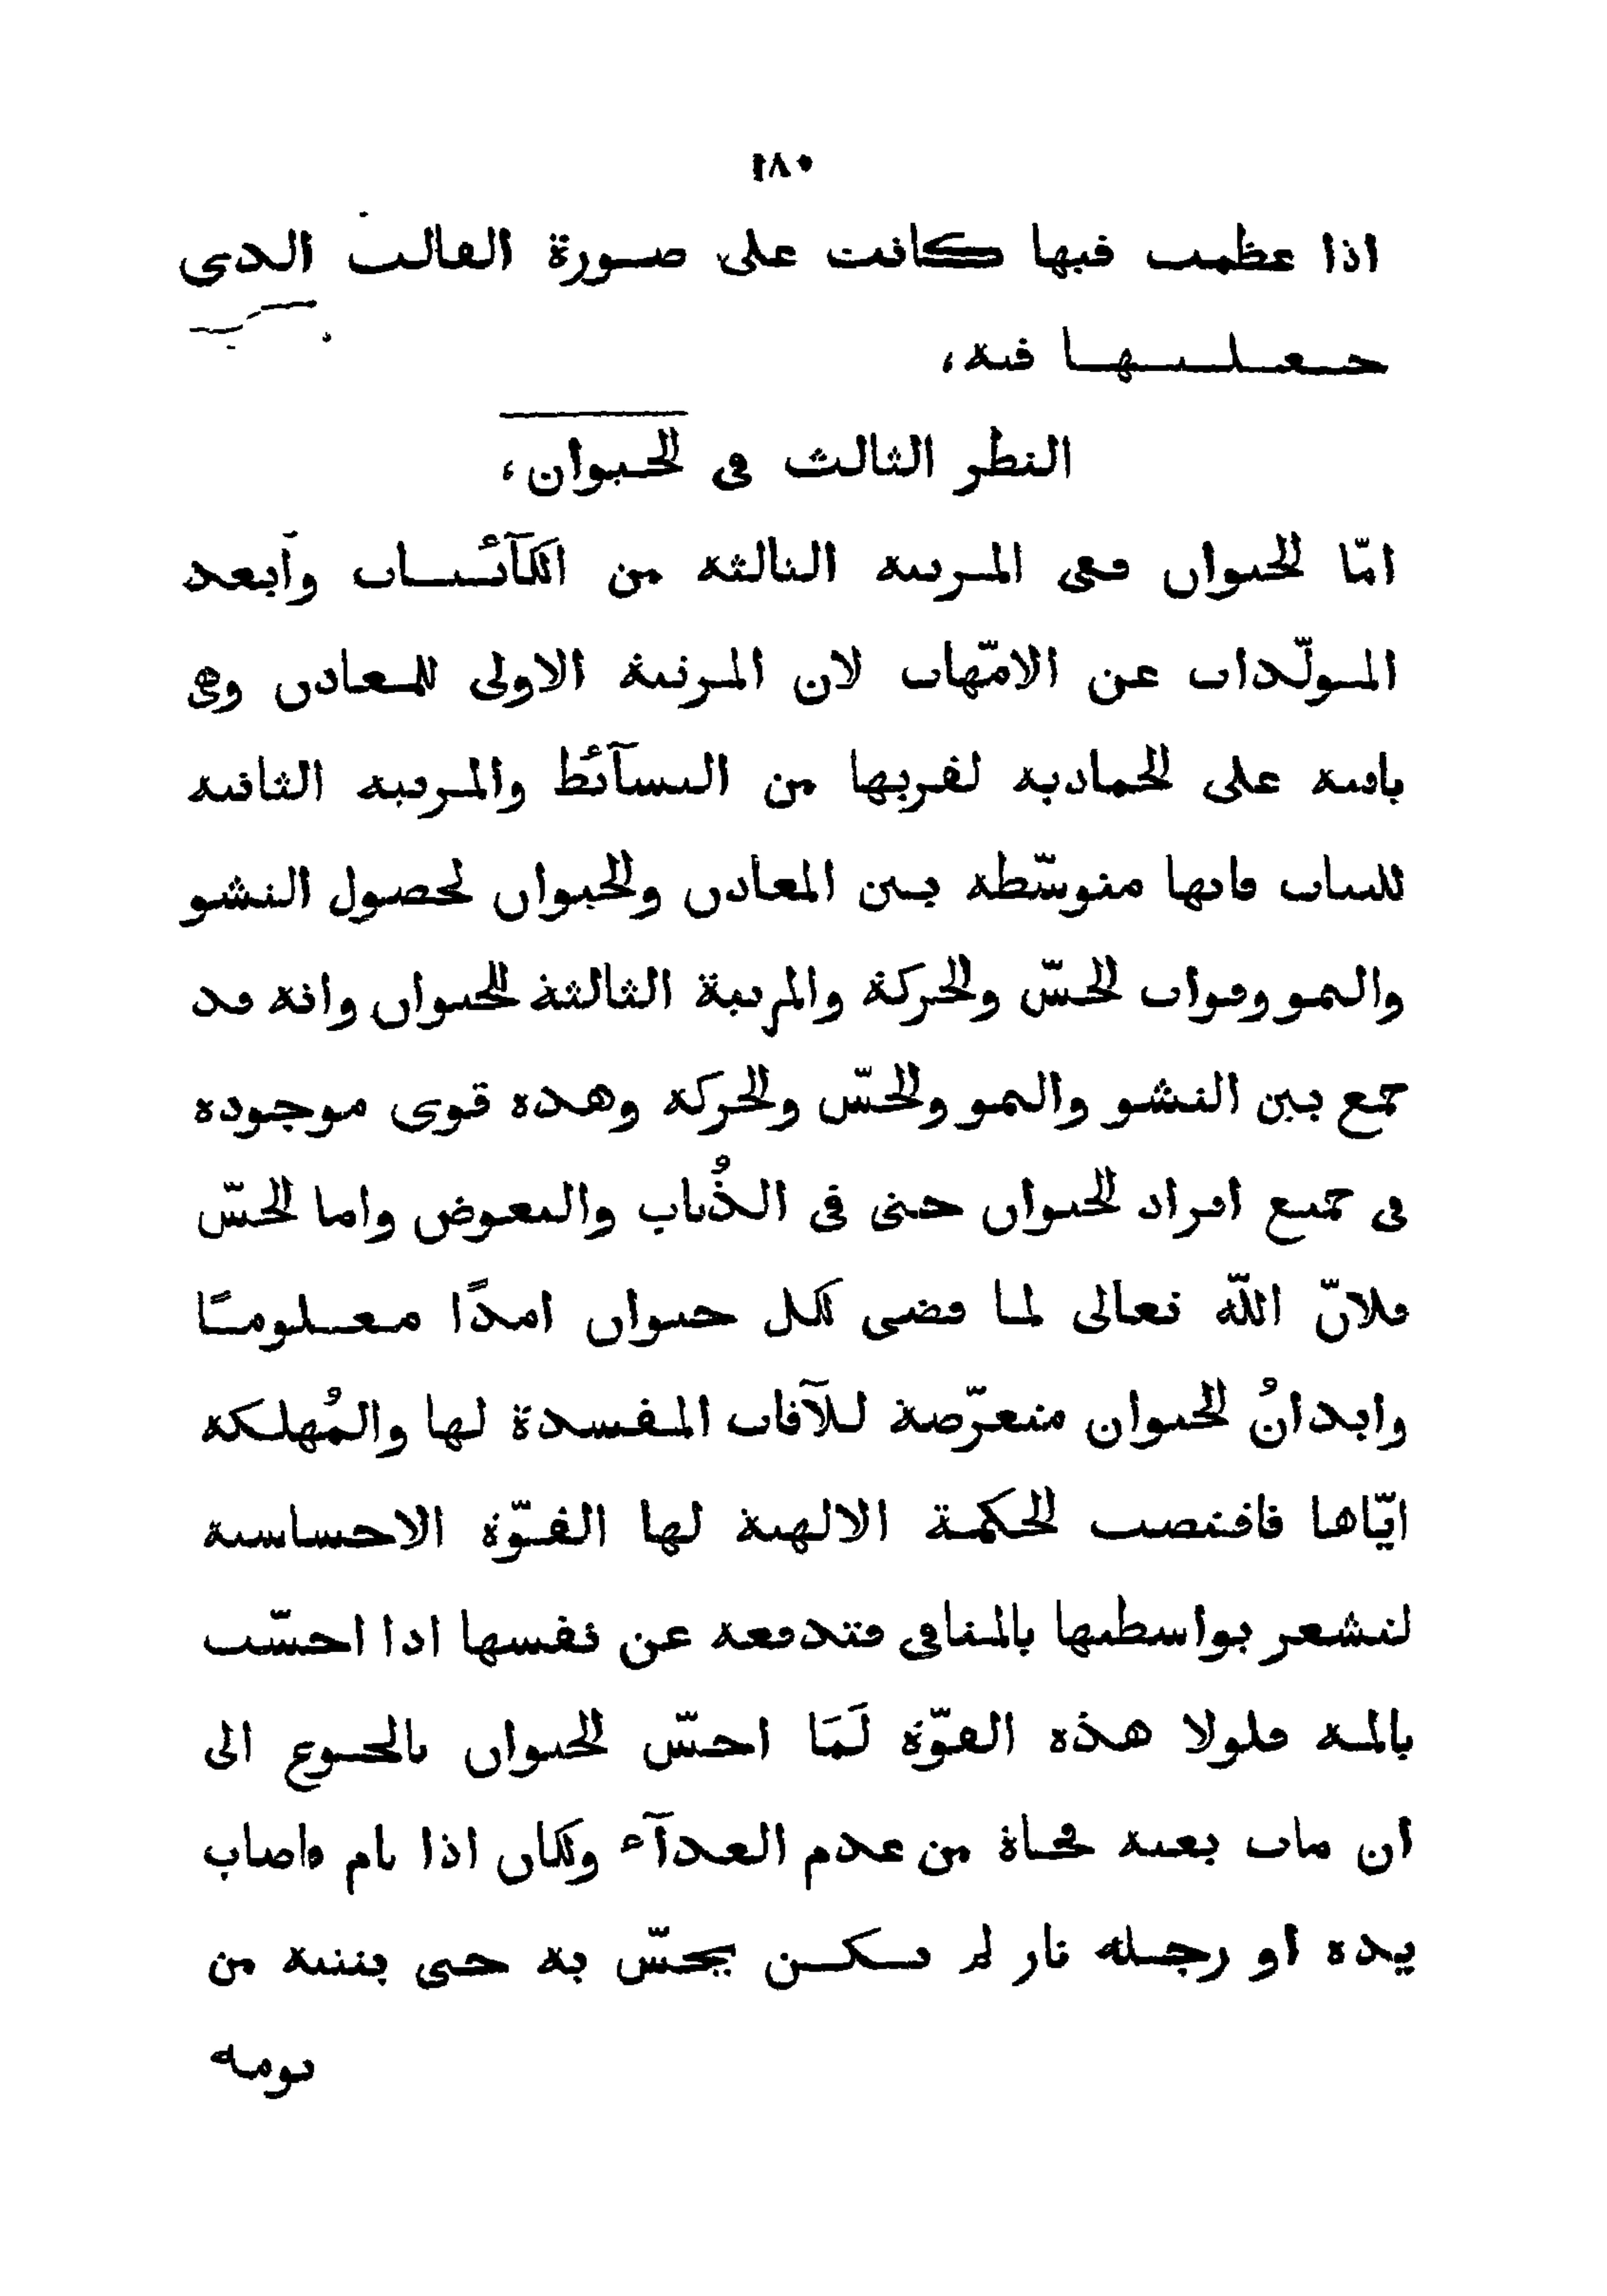 ١٨٠
اذا عظمت فيها كانت على صورة القالب الذى
جعلتها فيه،
النظر الثالث فى الحيوان،
امّا الحيوان ففى المرتبة الثالثة من الكآئنات وأبعد
المولّدات عن الامّهات لان المرتبة الاولى للمعادن وهى
باقية على الجمادية لقربها من البسآئط والمرتبة الثانية
للنبات فانها متوسّطة بين المعادن والحيوان لحصول النشو
والنمو وفوات الحسّ والحركة والمرتبة الثالثة للحيوان وانه قد
جمع بين النشو والنمو والحسّ والحركة وهذه قوى موجودة
فى جميع افراد الحيوان حتى فى الذُباب والبعوض واما الحسّ
فلانّ اللّه تعالى لما قضى لكل حيوان امدًا معلومًا
وابدانُ الحيوان متعرّضة للآفات المفسدة لها والمُهلكة
ايّاها فاقتضت الحكمة الالهية لها القوّة الاحساسية
لتشعر بواسطتها بالمنافى فتدفعه عن نفسها اذا احسّت
بالمه فلولا هذه القوّة لَمَا احسّ الحيوان بالجوع الى
أن مات بغتة فجاة من عدم الغدآء ولكان اذا نام فاصاب
يده أو رجله نار لم يكن يحسّ به حتى ينتبه من
نومه